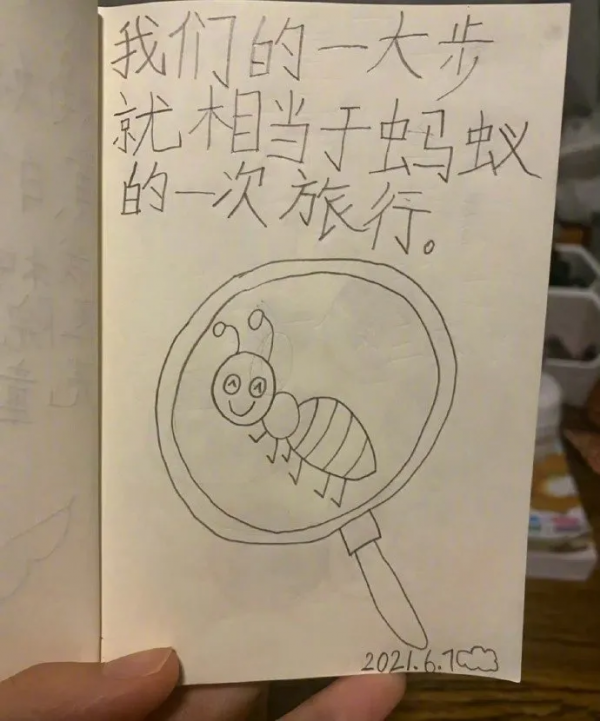 我们的一大步
就相当于蚂蚁
的一次旅行。
2021.6.7